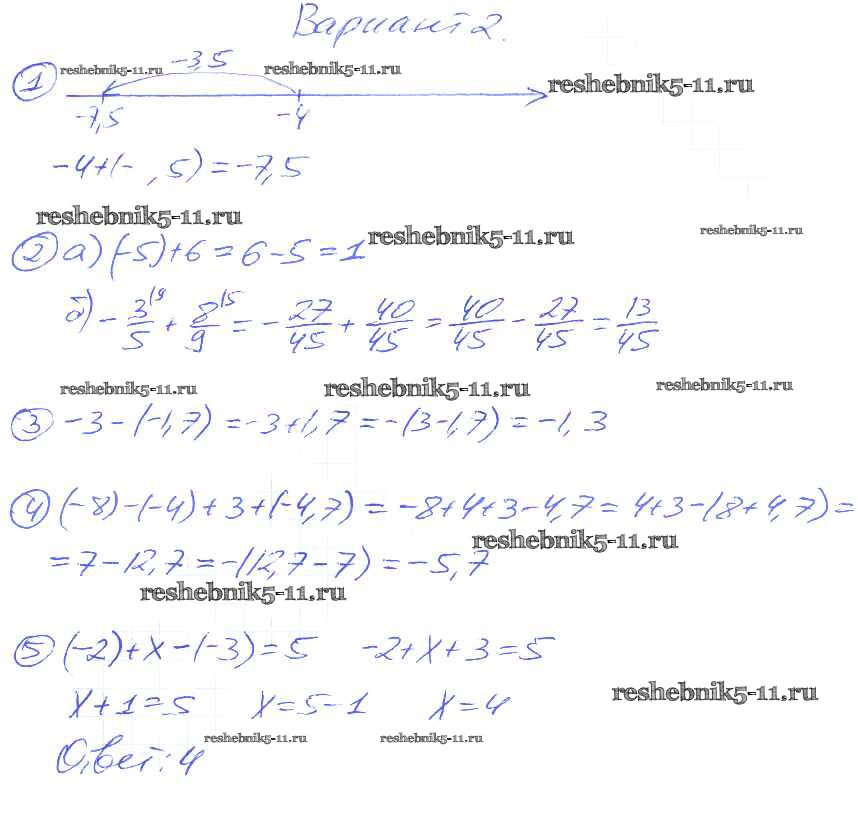 Вариант 2.
① reshebnik5-11.ru -3,5 reshebnik5-11.ru reshebnik5-11.ru
-7,5 -4
-4+(- , 5) = -7,5
reshebnik5-11.ru reshebnik5-11.ru reshebnik5-11.ru
② а) (-5)+6 = 6-5 = 1
б) - 3/5 |9 + 8/9 |5 = - 27/45 + 40/45 = 40/45 - 27/45 = 13/45
reshebnik5-11.ru reshebnik5-11.ru reshebnik5-11.ru
③ -3-(-1,7) = -3+1,7 = -(3-1,7) = -1,3
④ (-8)-(-4)+3+(-4,7) = -8+4+3-4,7 = 4+3-(8+4,7) =
reshebnik5-11.ru
= 7-12,7 = -(12,7-7) = -5,7
reshebnik5-11.ru
⑤ (-2)+x-(-3)=5 -2+x+3=5
reshebnik5-11.ru
x+1=5 x=5-1 x=4
reshebnik5-11.ru reshebnik5-11.ru
Ответ: 4